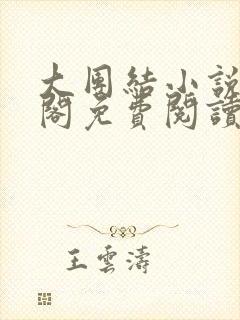 大團結小說
閣免費閱讀
王雲濤